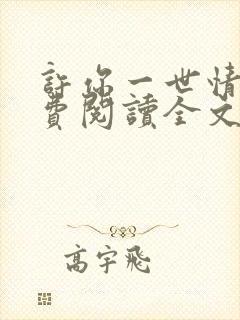 許你一世情
費閱讀全文
高宇飛